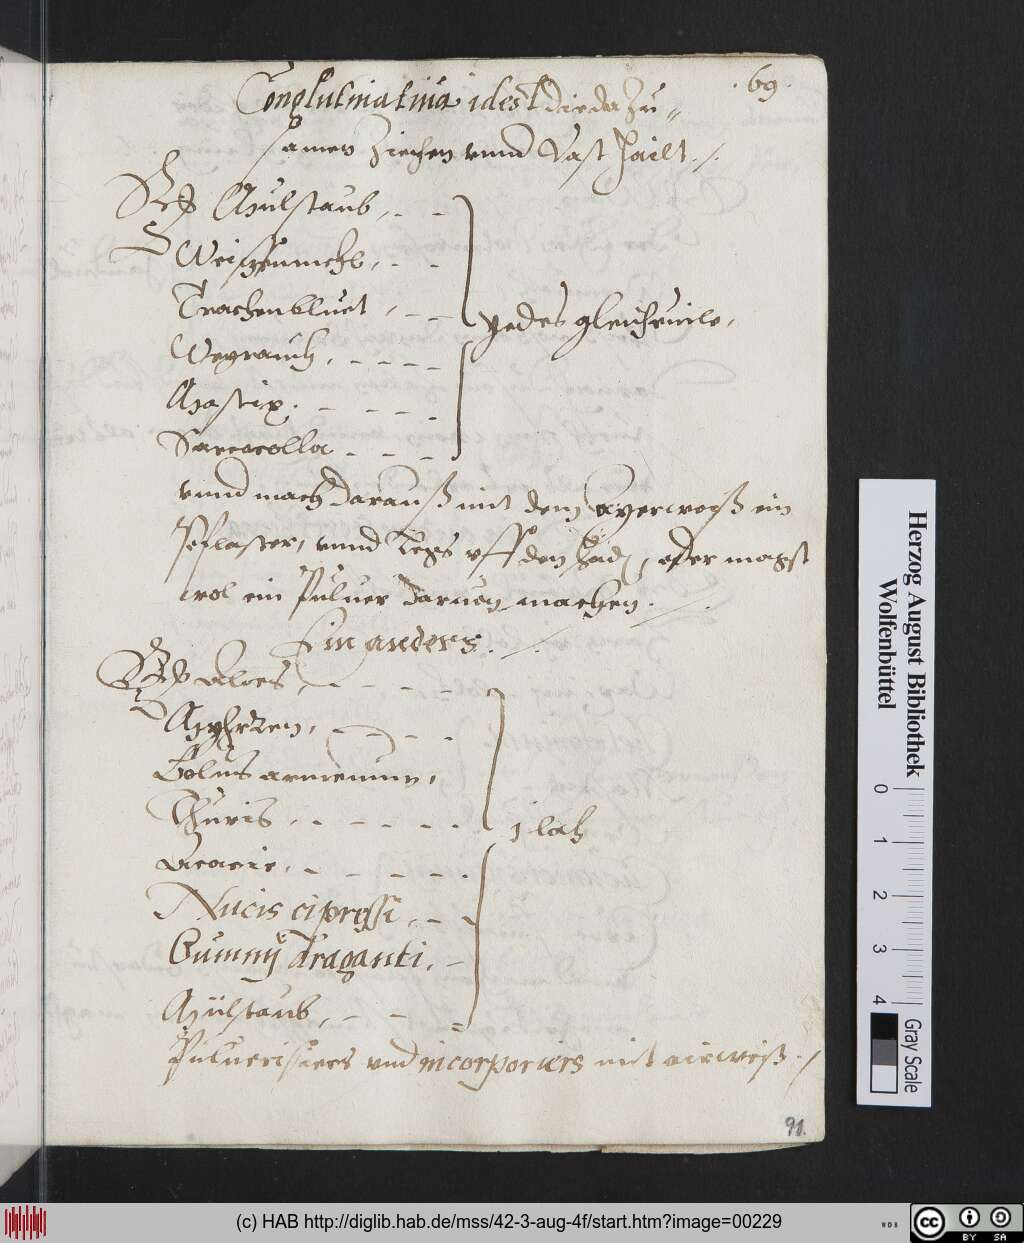 69.
Conglutinatiua id est die da Zu„
samen Ziechen vnnd Vast Hailt ./.
Rp Mülstaub, - -
Weitzenmehl, - -
Trachenbluet, - -
Weyrauch, - - - -
yedes gleichuile,
Mastix. - - - -
Sarcocolla - - -
vnnd mach darauß mit dem Ayerweiß ein
Pflaster, vnnd legs vff den schad, oder magst
wol ein Puluer daruon machen . /.
Ein anders . /.
Rp Aloes, - - - -
Myhrren, - - - -
Bolus armenuum,
Thuris, - - - - -
j loth
Acacie, - - - - -
Nucis cipressi, - -
Gummij draganti, -
Mülstaub, - - =
Puluerisiers vnd incorporiers mit airweiß ./
91.
Herzog August Bibliothek
Wolfenbüttel
0 1 2 3 4
Gray Scale
(c) HAB http://diglib.hab.de/mss/42-3-aug-4f/start.htm?image=00229
WDB
cc BY SA